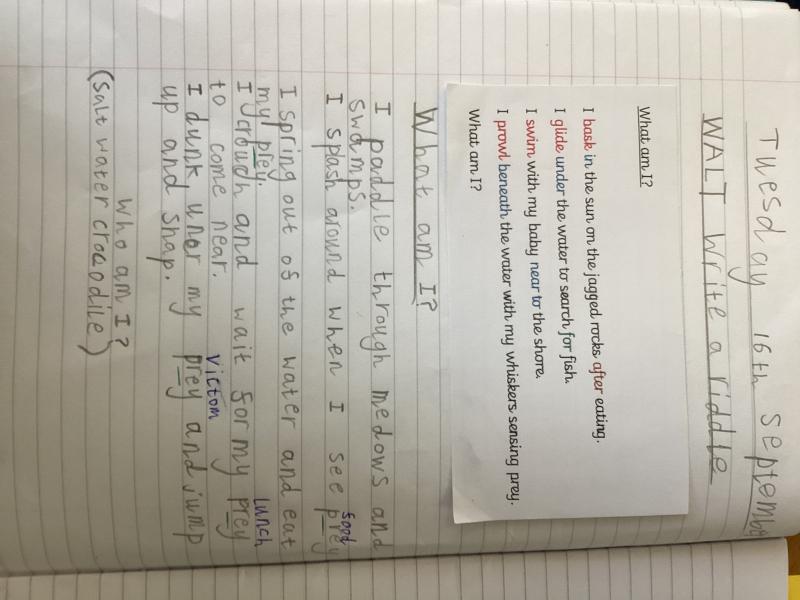 Tuesday 16th September
WALT Write a riddle
What am I?
I bask in the sun on the jagged rocks after eating.
I glide under the water to search for fish.
I swim with my baby near to the shore.
I prowl beneath the water with my whiskers sensing prey.
What am I?
What am I?
I paddle through medows and
swamps.
food
I splash around when I see prey
I spring out of the water and eat
my prey.
lunch
I crouch and wait for my prey
to come near.
victom
I dunk uner my prey and jump
up and snap.
Who am I?
(Salt water crocodile)